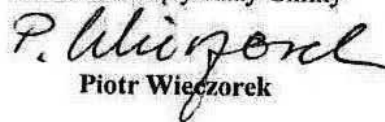 P. Wieczorek
Piotr Wieczorek